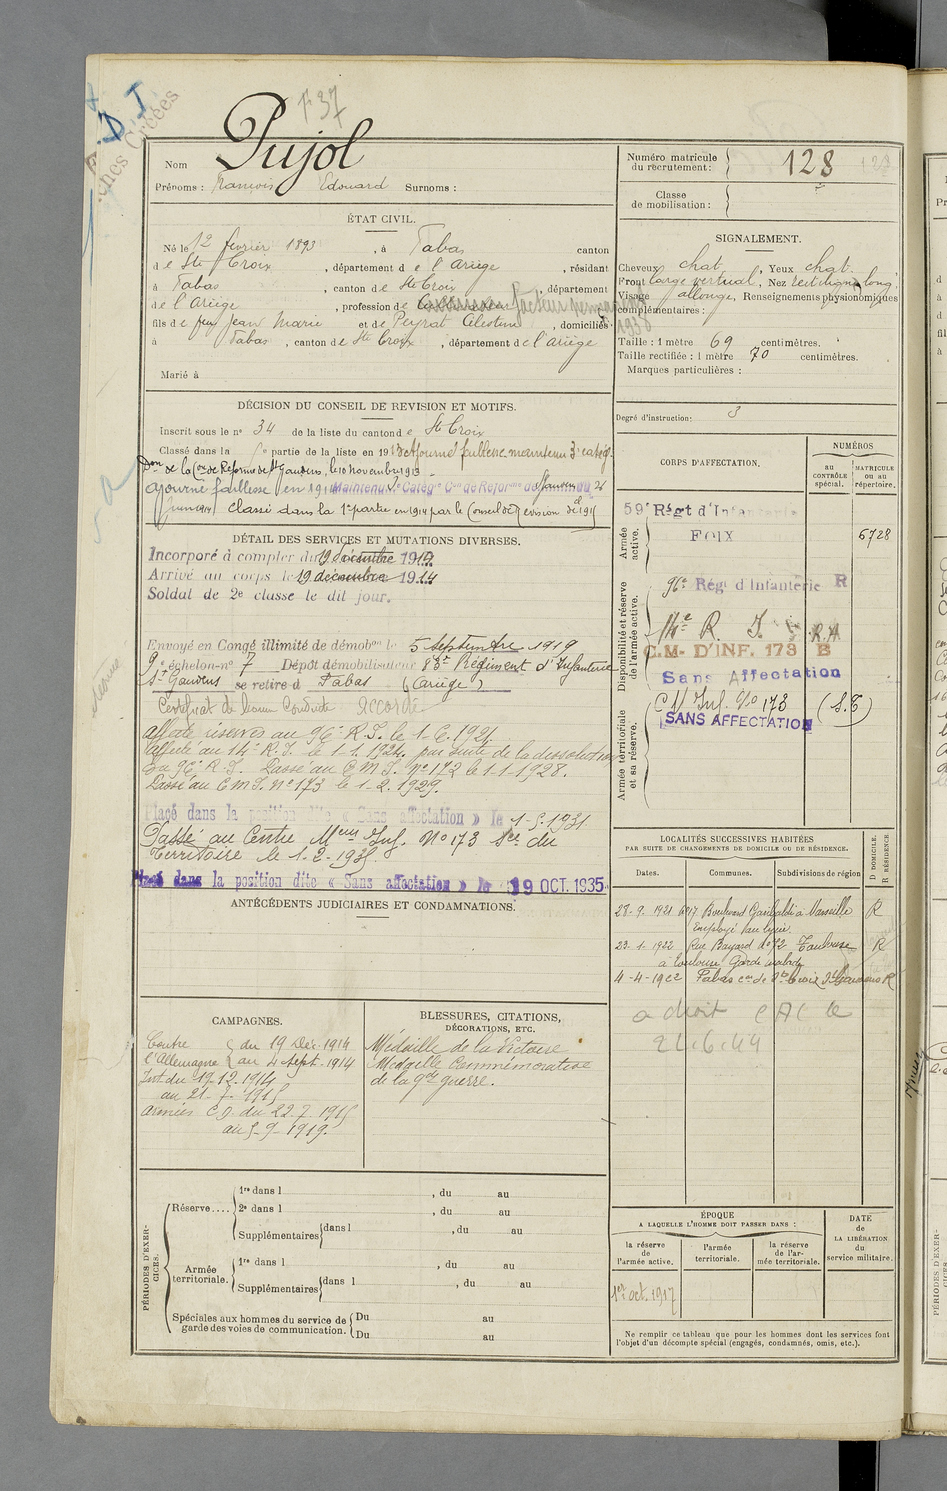 F 37
Nom Pujol
Prénoms : François Edouard Surnoms :
ÉTAT CIVIL.
Né le 12 février 1893, à Fabas canton
de Ste Croix, département de l'Ariège, résidant
à Fabas, canton de Ste Croix, département
de l'Ariège, profession de facteur
fils de feu Jean Marie et de Peyrat Célestine, domiciliés
à Fabas, canton de Ste Croix, département de l'Ariège
Marié à
DÉCISION DU CONSEIL DE REVISION ET MOTIFS.
Inscrit sous le no 34 de la liste du canton de Ste Croix
Classé dans la partie de la liste en 191
Don de la Con de Réforme de St Gaudens, le 10 novembre
ajourné faiblesse en 191 Maintenu Catégie Con de Réforme de St Gaudens du 26
Juin 1914 Classé dans la 1e partie en 1914 par le Conseil de Revision de 1915
DÉTAIL DES SERVICES ET MUTATIONS DIVERSES.
Incorporé à compter du 19 décembre 1914
Arrivé au corps le 19 décembre 1914
Soldat de 2e classe le dit jour.
Envoyé en Congé illimité de démobon le 5 Septembre 1919
9e échelon-no 7 Dépôt démobilisateur 83e Régiment d'Infanterie
St Gaudens se retire à Fabas (Ariège)
Certificat de bonne Conduite Accordé
Affecté réserves au 96e R.I. le 1-6-1921.
Affecté au 14e R.I. le 1-1-1924. par suite de la dissolution
du 96e R.I. Passé au C M I. no 172 le 1-1-1928.
Passé au C M I. No 173 le 1-2-1929.
Placé dans la position dite « Sans affectation » le 1-5-1931
Passé au Centre Meur Inf. No 173 Sce du
Territoire le 1-2-193
Placé dans la position dite « Sans affectation » le 19 OCT. 1935
ANTÉCÉDENTS JUDICIAIRES ET CONDAMNATIONS.
CAMPAGNES.
Contre l'Allemagne { du 19 Déc. 1914 au 4 Sept. 1914
Int du 19.12.1914
au 21-7-1915
Armées C D. du 22.7.1915
au 5-9-1919.
BLESSURES, CITATIONS,
DÉCORATIONS, ETC.
Médaille de la Victoire
Médaille Commémorative
de la gde guerre.
PÉRIODES D'EXERCICES.
Réserve....
1re dans l , du au
2e dans l , du au
Supplémentaires { dans l , du au
Armée territoriale.
1re dans l , du au
Supplémentaires { dans l , du au
Spéciales aux hommes du service de garde des voies de communication. { Du au
Du au
Numéro matricule du recrutement : 128
Classe de mobilisation :
SIGNALEMENT.
Cheveux chat, Yeux chat.
Front large vertical, Nez rectiligne long,
Visage allongé, Renseignements physionomiques
complémentaires :
Taille : 1 mètre 69 centimètres.
Taille rectifiée : 1 mètre 70 centimètres.
Marques particulières :
Degré d'instruction : 3
CORPS D'AFFECTATION.
NUMÉROS
AU CONTRÔLE SPÉCIAL.
MATRICULE OU AU RÉPERTOIRE.
Armée active.
59e Régt d'Infanterie
FOIX
6728
Disponibilité et réserve de l'armée active.
96e Régt d'Infanterie R
14e R. I. R.A
C.M. D'INF. 173 B
Sans Affectation
Armée territoriale et sa réserve.
C M Inf. No 173 (S.T)
SANS AFFECTATION
LOCALITÉS SUCCESSIVES HABITÉES
PAR SUITE DE CHANGEMENTS DE DOMICILE OU DE RÉSIDENCE.
Dates. Communes. Subdivisions de région
D DOMICILE. R RÉSIDENCE
28-9-1921 Boulevard Garibaldi à Marseille R
Employé
23-1-1922 Rue Bayard No 72 Toulouse R
à Toulouse Garde malade
4-4-1922 Fabas con de Ste Croix St Gaudens R
a droit CAC le
21.6.44
ÉPOQUE
A LAQUELLE L'HOMME DOIT PASSER DANS :
la réserve de l'armée active.
l'armée territoriale.
la réserve de l'armée territoriale.
DATE de LA LIBÉRATION du service militaire.
1er oct. 1917
Ne remplir ce tableau que pour les hommes dont les services font
l'objet d'un décompte spécial (engagés, condamnés, omis, etc.).